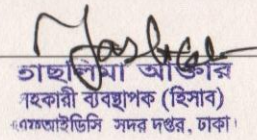 তাছলিমা আক্তার
সহকারী ব্যবস্থাপক (হিসাব)
এফআইডিসি সদর দপ্তর, ঢাকা।